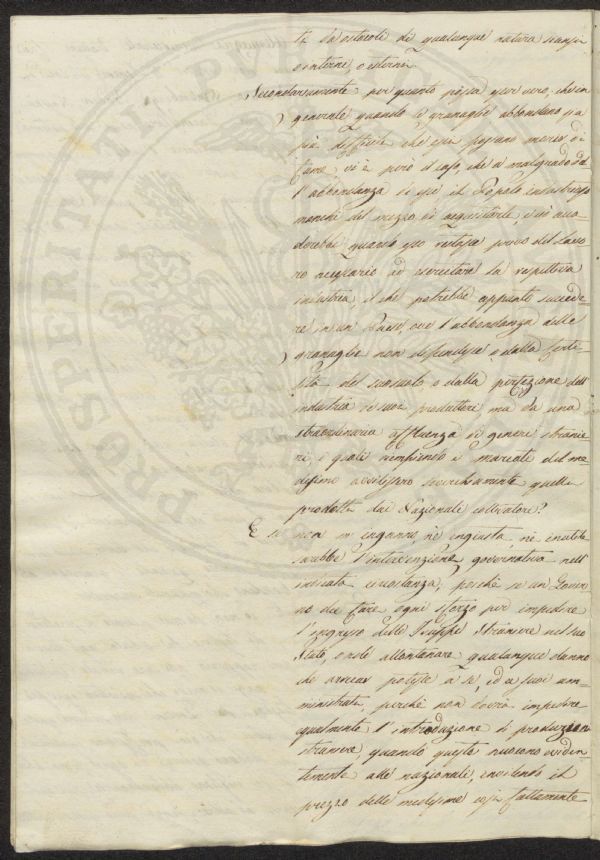 ta da ostacoli di qualunque natura siansi
o interni, o esterni.
Secondariamente per quanto possa esser vero, che in
generale quando le granaglie abbondano sia
più difficile che essi possano morir di
fame, vi è però il caso, che a malgrado del-
l'abbondanza di esse il Popolo industrioso
manchi del mezzo di acquistarle, e ciò acca-
derebbe quando esso restasse privo del lavo-
ro necessario ad esercitare la respettiva
industria, il che potrebbe appunto succede-
re in un Paese, ove l'abbondanza delle
granaglie non dipendesse, o dalla ferti-
lità del suo suolo o dalla perfezione dell'
industria de suoi produttori, ma da una
straordinaria affluenza di generi stranie-
ri, i quali riempiendo i mercati del me-
desimo avvilissero soverchiamente quelli
prodotti dai Nazionali coltivatori?
E se non m'inganno, nè ingiusta, nè inutile
sarebbe l'intervenzione governativa nell'
indicata circostanza, perchè se un Gover-
no dee fare ogni sforzo per impedire
l'ingresso delle Truppe Straniere nel suo
Stato, onde allontanare qualunque danno
che arrecar potesse a se, ed a suoi am-
ministrati, perchè non dovrà impedire
egualmente l'introduzione di produzioni
straniere, quando queste nuocono eviden-
temente alle nazionali, invilendo il
prezzo delle medesime così fattamente
PROSPERITATI PVBLICAE